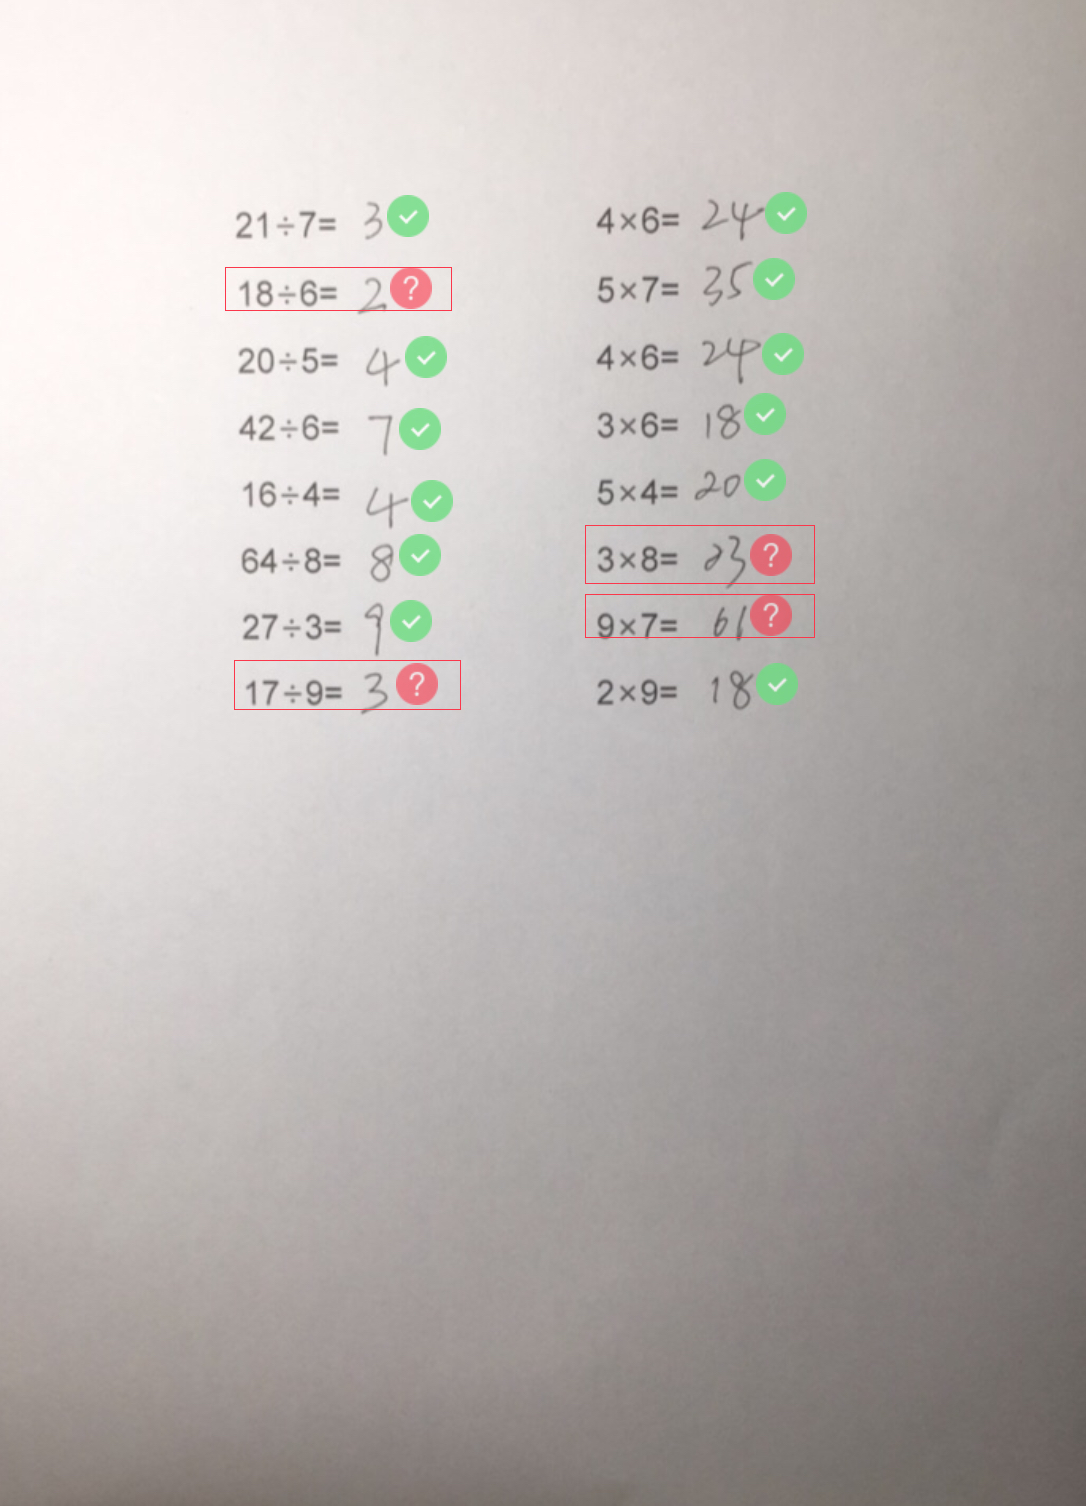 21÷7= 3
18÷6= 2 ?
20÷5= 4
42÷6= 7
16÷4= 4
64÷8= 8
27÷3= 9
17÷9= 3 ?
4×6= 24
5×7= 35
4×6= 24
3×6= 18
5×4= 20
3×8= 23 ?
9×7= 61 ?
2×9= 18